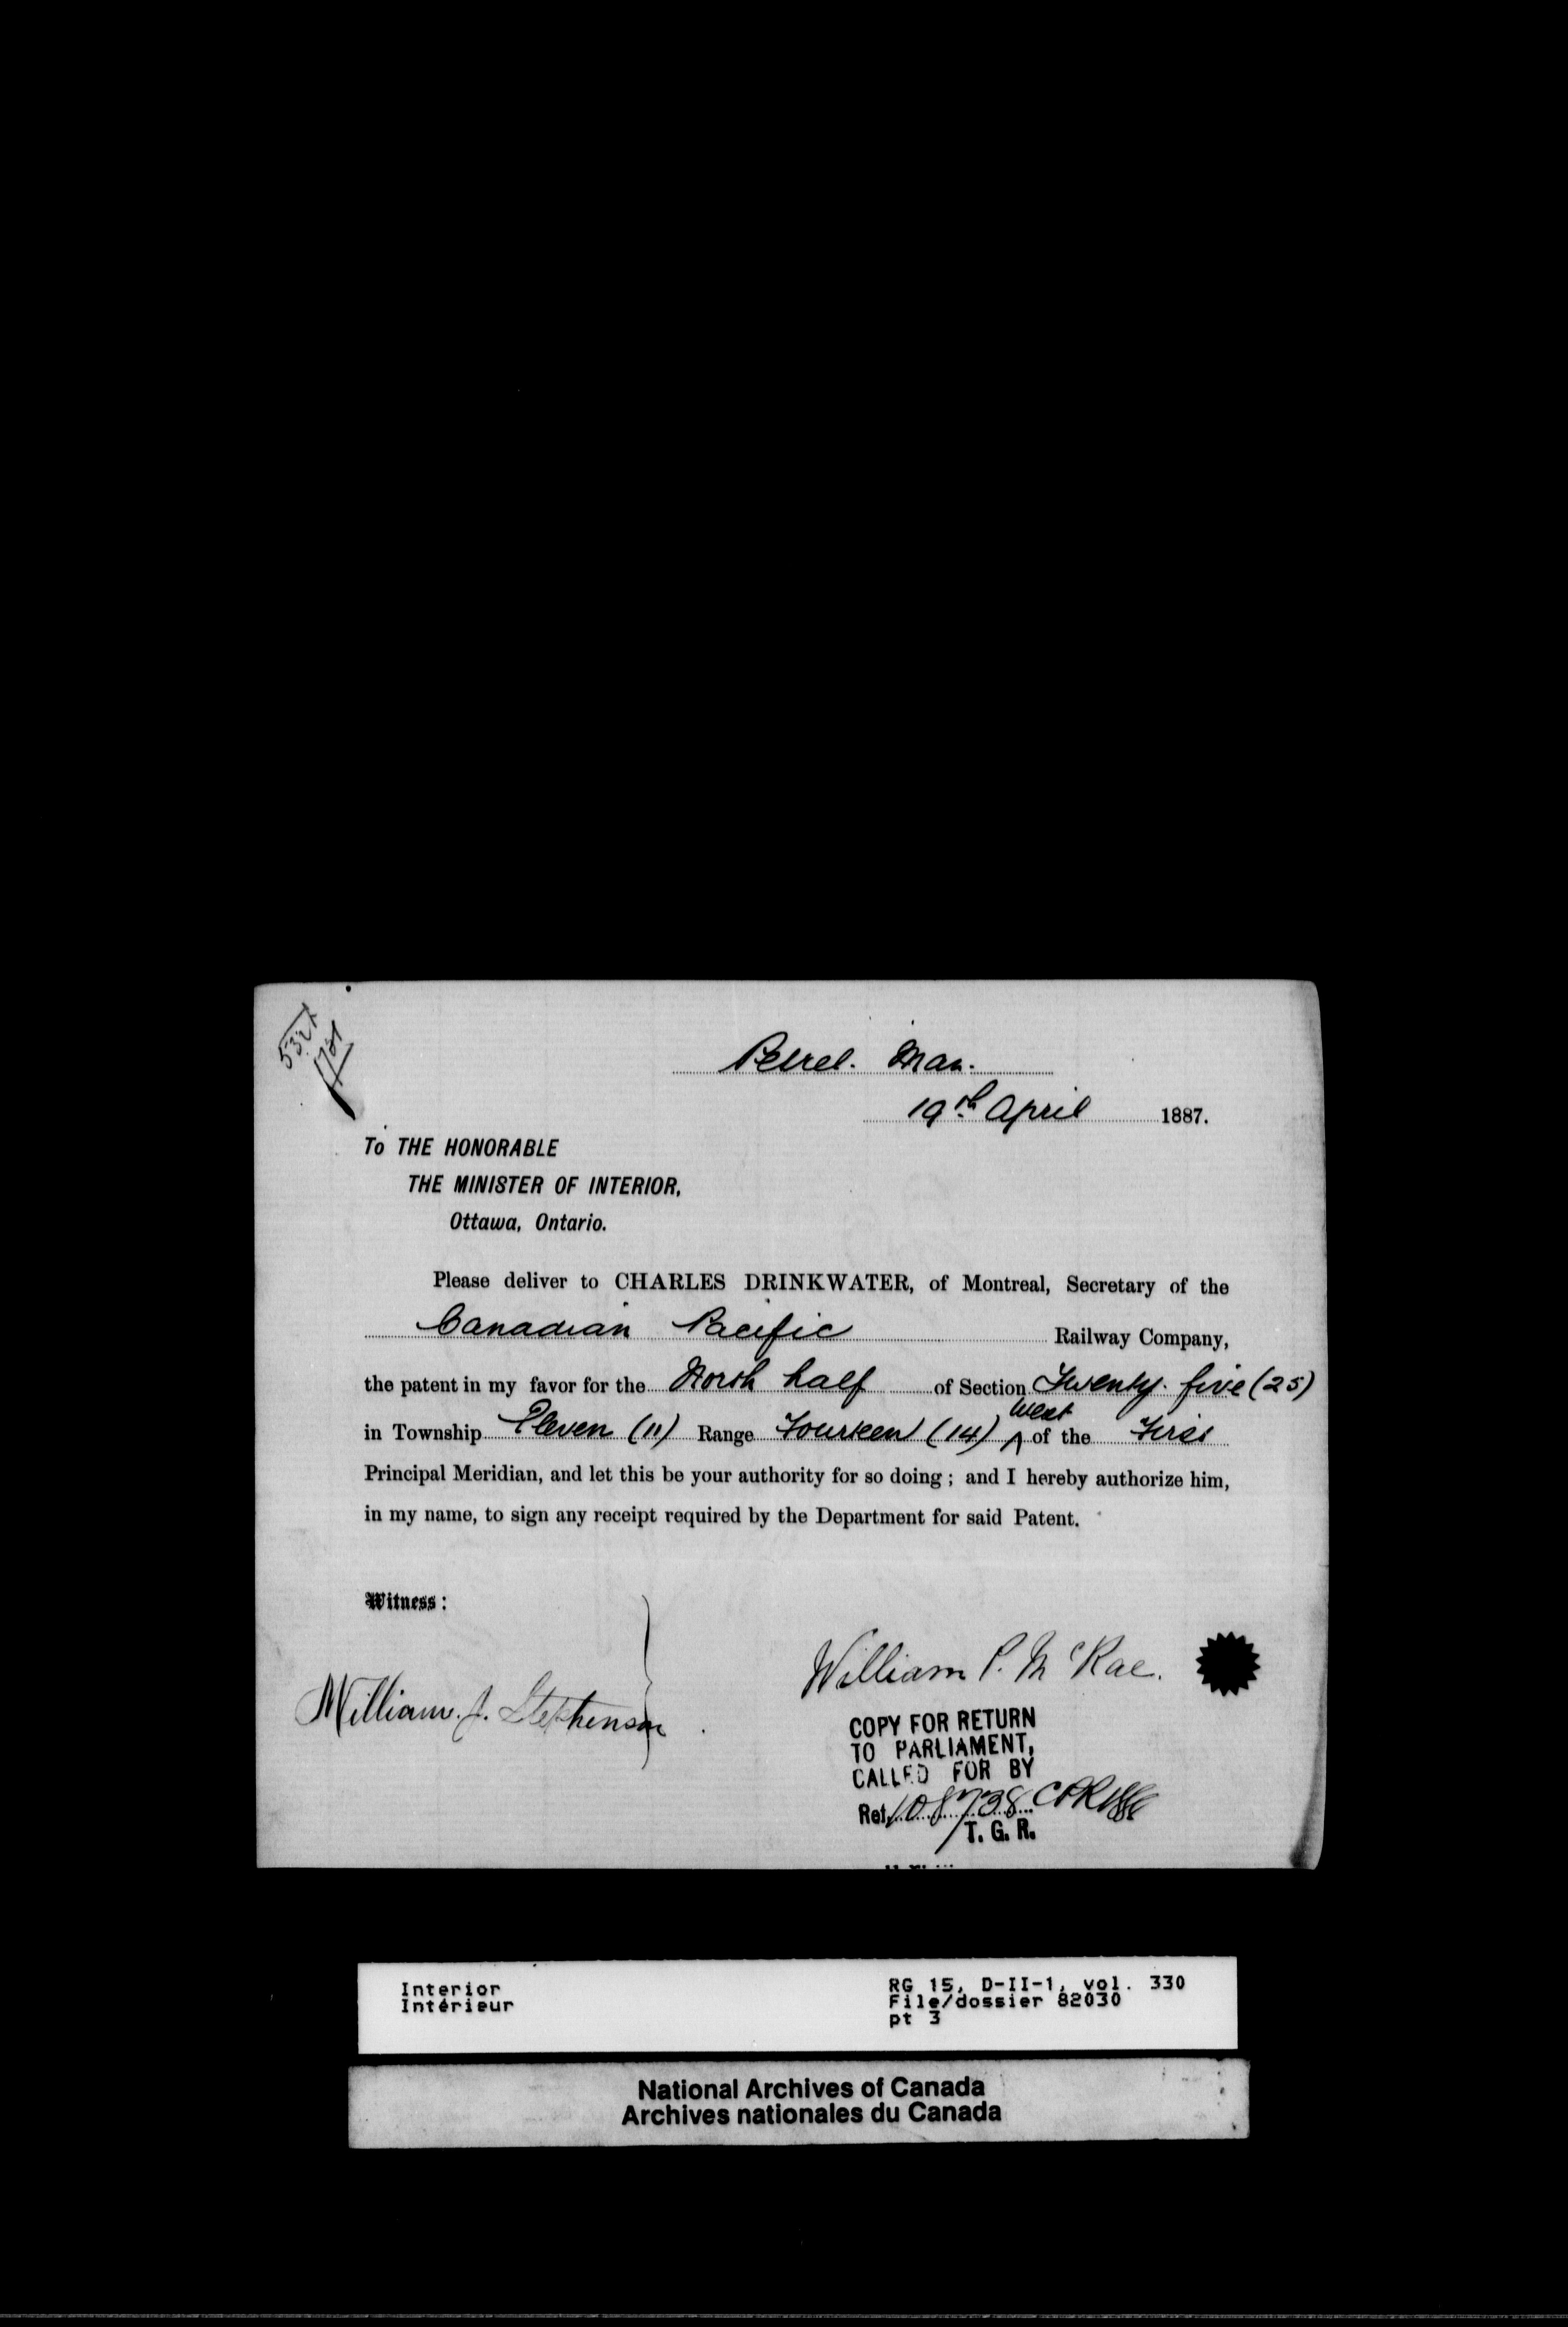 Petrel. Man.
19th April 1887.
To THE HONORABLE
THE MINISTER OF INTERIOR,
Ottawa, Ontario.
Please deliver to CHARLES DRINKWATER, of Montreal, Secretary of the
Canadian Pacific Railway Company,
the patent in my favor for the North half of Section Twenty-five (25)
in Township Eleven (11) Range Fourteen (14) west of the First
Principal Meridian, and let this be your authority for so doing; and I hereby authorize him,
in my name, to sign any receipt required by the Department for said Patent.
Witness:
William P. McRae.
William. J. Stephenson
COPY FOR RETURN
TO PARLIAMENT,
CALLED FOR BY
Ref. 108738 CPR
T. G. R.
Interior
Intérieur
RG 15, D-II-1, vol. 330
File/dossier 82030
pt 3
National Archives of Canada
Archives nationales du Canada